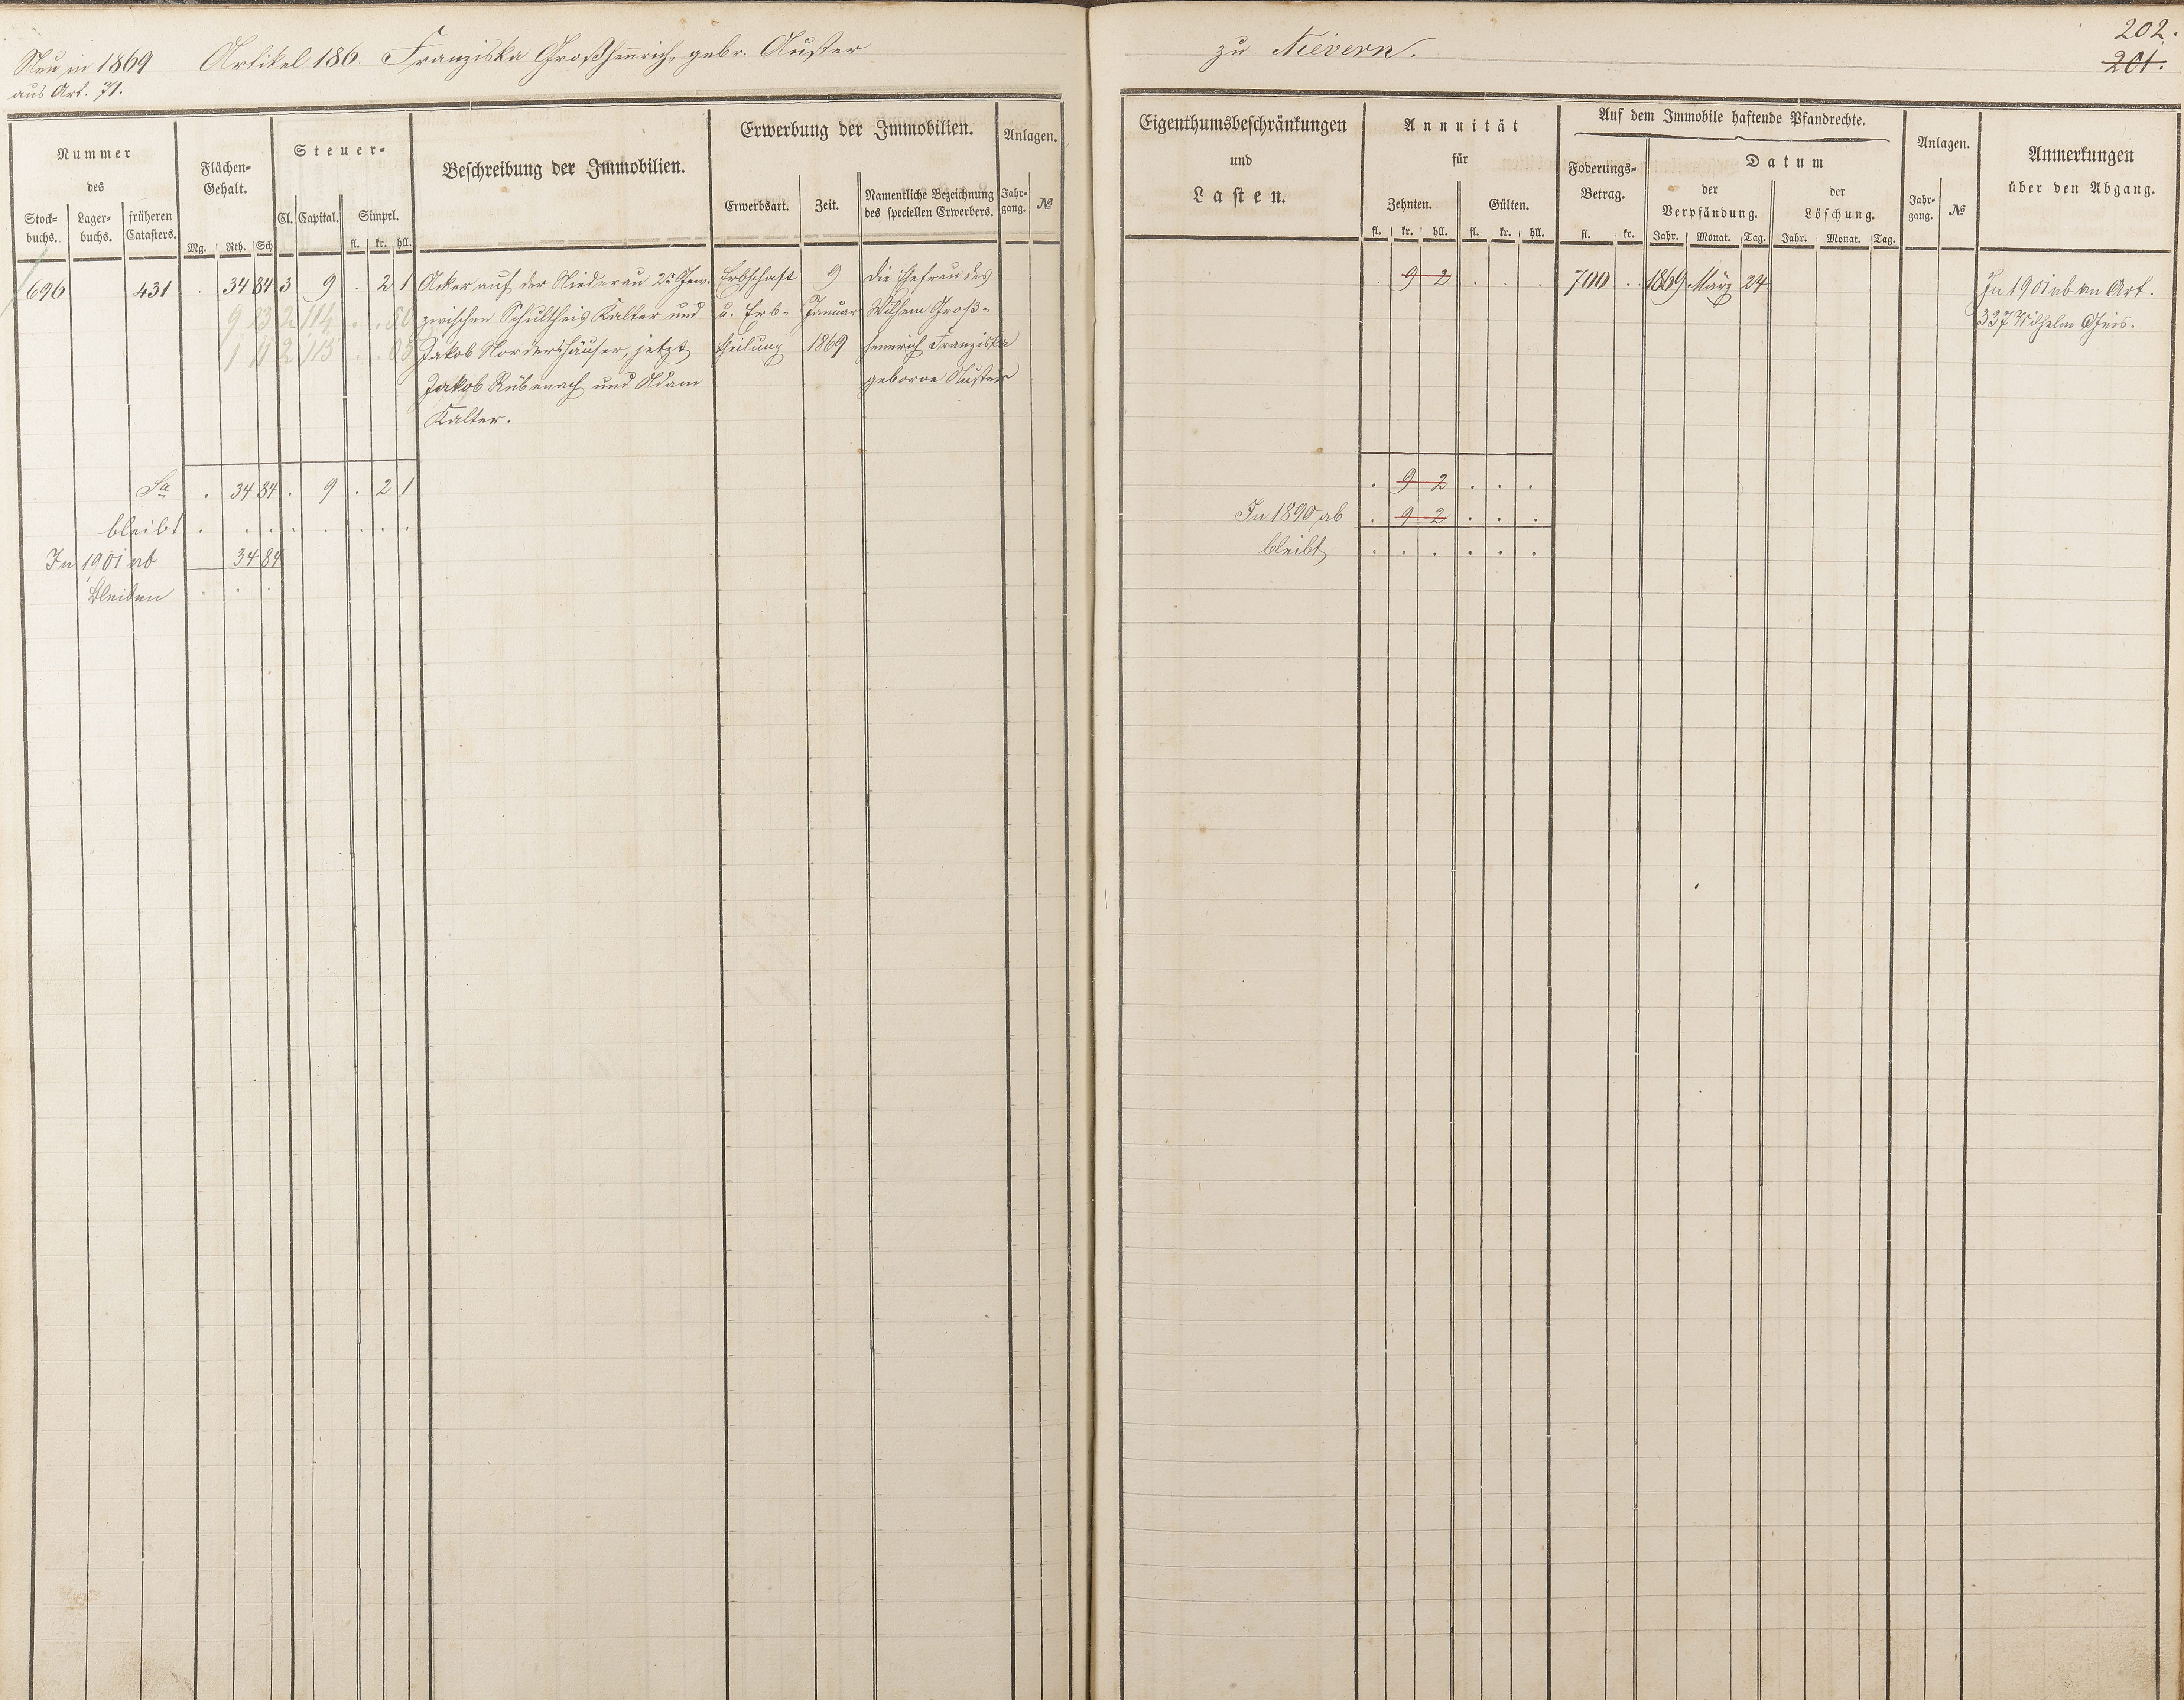 Neu in 1869 Artikel 186. Franziska Großhenrich, gebr. Auster
aus Art. 71.
Nummer
des
Stock-
buchs.
Lager-
buchs.
früheren
Catasters.
Flächen-
Gehalt.
Mg. Rth. Sch
Steuer-
Cl. Capital. Simpel.
fl. kr. hll.
Beschreibung der Immobilien.
Erwerbung der Immobilien.
Erwerbsart. Zeit.
Namentliche Bezeichnung
des speciellen Erwerbers.
Anlagen.
Jahr-
gang.
№
696 431 . 34 84 3 9 . 2 1 Acker auf der Niederau 2r Gew. Erbschaft 9 Die Ehefrau des
9 23 2 114 . . 50 zwischen Schultheis Kalter und u. Erb- Januar Wilhem Groß-
1 11 2 115 . . 05 Jakob Nordershäuser, jetzt theilung 1869 henrich Franziska
Jakob Rübenach und Adam geborne Auster
Kalter.
Sa . 34 84 . 9 . 2 1
bleibt . . . . . . . .
In 1901 ab 34 84
bleiben . . .
zu Nievern.
202.
201.
Eigenthumsbeschränkungen
und
Lasten.
Annuität
für
Zehnten. Gülten.
fl. kr. hll. fl. kr. hll.
Auf dem Immobile haftende Pfandrechte.
Foderungs-
Betrag.
fl. kr.
Datum
der
Verpfändung.
Jahr. Monat. Tag.
der
Löschung.
Jahr. Monat. Tag.
Anlagen.
Jahr-
gang.
№
Anmerkungen
über den Abgang.
. 9 2 . . . 700 . 1869 März 24 In 1901 ab an Art.
337 Wilhelm
. 9 2 . . .
In 1890 ab . 9 2 . . .
bleibt . . . . . .